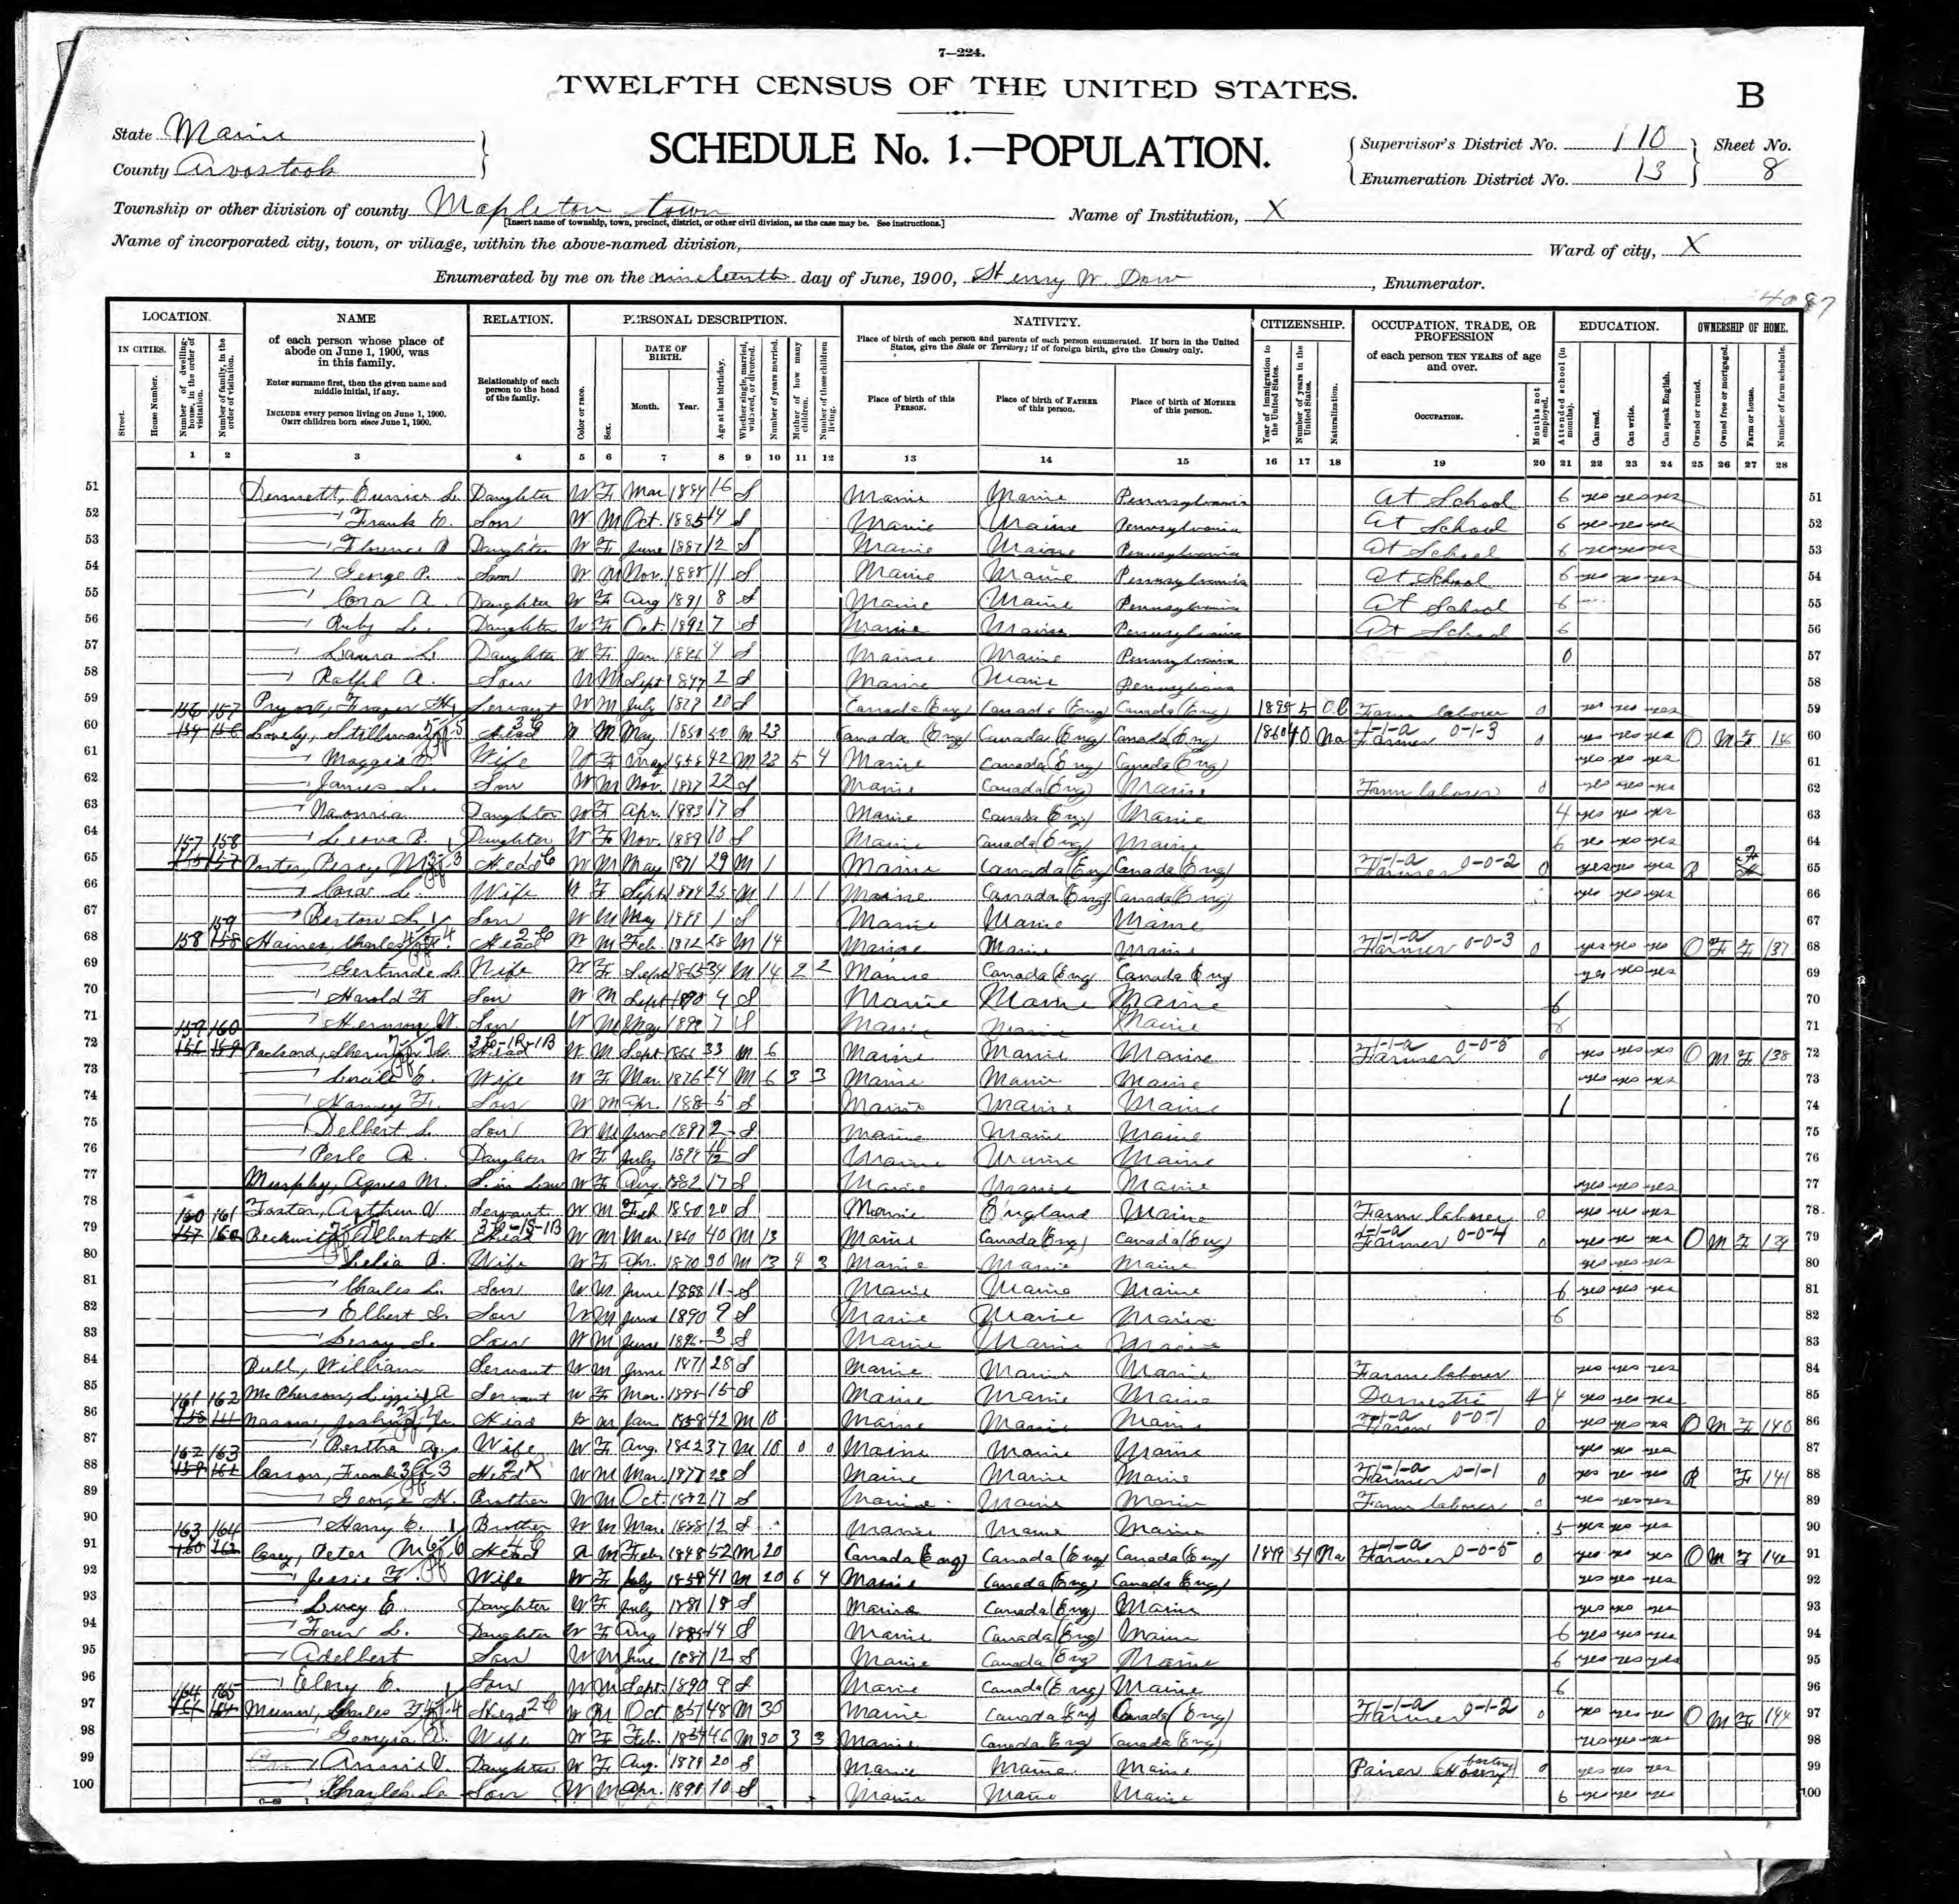 7—224.
TWELFTH CENSUS OF THE UNITED STATES.
B
State Maine
SCHEDULE No. 1.—POPULATION.
County Aroostook
Supervisor's District No. 110
Sheet No.
Enumeration District No. 13
8
Township or other division of county Mapleton town
Name of Institution, X
[Insert name of township, town, precinct, district, or other civil division, as the case may be. See instructions.]
Name of incorporated city, town, or village, within the above-named division,
Ward of city, X
Enumerated by me on the nineteenth day of June, 1900, Henry W. Dow, Enumerator.
4087
LOCATION. NAME RELATION. PERSONAL DESCRIPTION. NATIVITY. CITIZENSHIP. OCCUPATION, TRADE, OR PROFESSION EDUCATION. OWNERSHIP OF HOME.
IN CITIES.
Street.
House Number.
Number of dwelling-house, in the order of visitation.
Number of family, in the order of visitation.
of each person whose place of abode on June 1, 1900, was in this family.
Enter surname first, then the given name and middle initial, if any.
INCLUDE every person living on June 1, 1900.
OMIT children born since June 1, 1900.
Relationship of each person to the head of the family.
Color or race.
Sex.
DATE OF BIRTH.
Month. Year.
Age at last birthday.
Whether single, married, widowed, or divorced.
Number of years married.
Mother of how many children.
Number of these children living.
Place of birth of each person and parents of each person enumerated. If born in the United States, give the State or Territory; if of foreign birth, give the Country only.
Place of birth of this PERSON.
Place of birth of FATHER of this person.
Place of birth of MOTHER of this person.
Year of immigration to the United States.
Number of years in the United States.
Naturalization.
of each person TEN YEARS of age and over.
OCCUPATION.
Months not employed.
Attended school (in months).
Can read.
Can write.
Can speak English.
Owned or rented.
Owned free or mortgaged.
Farm or house.
Number of farm schedule.
1 2 3 4 5 6 7 8 9 10 11 12 13 14 15 16 17 18 19 20 21 22 23 24 25 26 27 28
51 Daughter W F Mar 1884 16 S Maine Maine Pennsylvania At School 6 yes yes yes 51
52 Frank E. Son W M Oct. 1885 14 S Maine Maine Pennsylvania At School 6 yes yes yes 52
53 Florence Daughter W F June 1887 12 S Maine Maine Pennsylvania At School 6 yes yes yes 53
54 George P. Son W M Nov. 1888 11 S Maine Maine Pennsylvania At School 6 yes yes yes 54
55 Cora A. Daughter W F Aug 1891 8 S Maine Maine Pennsylvania At School 6 55
56 Ruby L. Daughter W F Oct. 1892 7 S Maine Maine Pennsylvania At School 6 56
57 Laura L. Daughter W F Jan 1896 4 S Maine Maine Pennsylvania 0 57
58 Ralph A. Son W M Sept 1897 2 S Maine Maine Pennsylvania 58
59 Servant W M July 1879 20 S Canada (Eng) Canada (Eng) Canada (Eng) 1895 5 Farm laborer 0 yes yes yes 59
60 156 157 Lovely, Head W M May 1850 50 M 23 Canada (Eng) Canada (Eng) Canada (Eng) 1860 40 Na Farmer 0-1-3 0 yes yes yes O M F 136 60
61 Maggie Wife W F May 1858 42 M 23 5 4 Maine Canada (Eng) Canada (Eng) yes yes yes 61
62 James L. Son W M Nov. 1877 22 S Maine Canada (Eng) Maine Farm laborer 0 yes yes yes 62
63 Naomia Daughter W F Apr. 1883 17 S Maine Canada (Eng) Maine 4 yes yes yes 63
64 Leona B. Daughter W F Nov. 1889 10 S Maine Canada (Eng) Maine 6 yes yes yes 64
65 157 158 Porter, Percy M Head W M May 1871 29 M 1 Maine Canada (Eng) Canada (Eng) Farmer 0-0-2 0 yes yes yes R 65
66 Cora L. Wife W F Sept 1874 25 M 1 1 1 Maine Canada (Eng) Canada (Eng) yes yes yes 66
67 Son W M May 1 S Maine Maine Maine 67
68 158 159 Haines, Charles Head W M Feb. 1872 28 M 14 Maine Maine Maine Farmer 0-0-3 0 yes yes yes O F F 137 68
69 Gertrude L. Wife W F Sept 1865 34 M 14 2 2 Maine Canada (Eng) Canada (Eng) yes yes yes 69
70 Harold F Son W M Sept 1890 9 S Maine Maine Maine 6 70
71 Son W M May 7 S Maine Maine Maine 6 71
72 159 160 Packard, Head W M Sept 1866 33 M 6 Maine Maine Maine Farmer 0-0-5 0 yes yes yes O M F 138 72
73 Wife W F Mar 1876 24 M 6 3 3 Maine Maine Maine yes yes yes 73
74 Son W M Apr. 5 S Maine Maine Maine 1 74
75 Delbert L. Son W M June 1897 2 S Maine Maine Maine 75
76 Perle A. Daughter W F July S Maine Maine Maine 76
77 Murphy, Agnes M. S. in Law W F Aug. 1882 17 S Maine Maine Maine yes yes yes 77
78 Foster, Arthur V Servant W M Feb 1880 20 S Maine England Maine Farm laborer 0 yes yes yes 78
79 160 161 Beckwith, Albert H. Head W M Mar. 1860 40 M 13 Maine Canada (Eng) Canada (Eng) Farmer 0-0-4 0 yes yes yes O M F 139 79
80 Lelia Wife W F Apr. 1870 30 M 13 4 3 Maine Maine Maine yes yes yes 80
81 Charles L. Son W M June 1888 11 S Maine Maine Maine 6 yes yes yes 81
82 Elbert Son W M June 1890 9 S Maine Maine Maine 6 82
83 Leroy Son W M June 1896 3 S Maine Maine Maine 83
84 Bull, William Servant W M June 1871 28 S Maine Maine Maine Farm laborer yes yes yes 84
85 McPherson, Lizzie A Servant W F Mar. 1885 15 S Maine Maine Maine Domestic 4 4 yes yes yes 85
86 161 162 Nason, Head W M Jan 1858 42 M 10 Maine Maine Maine 0-0-1 0 yes yes yes O M F 140 86
87 Bertha Wife W F Aug. 1862 37 M 10 0 0 Maine Maine Maine yes yes yes 87
88 162 163 Carson, Frank Head W M Mar. 1877 23 S Maine Maine Maine Farmer 0-1-1 0 yes yes yes R F 141 88
89 George H. Brother W M Oct. 1882 17 S Maine Maine Maine Farm laborer 0 yes yes yes 89
90 Harry E. Brother W M Mar. 1888 12 S Maine Maine Maine 5 yes yes yes 90
91 163 164 Peter M Head W M Feb 1848 52 M 20 Canada (Eng) Canada (Eng) Canada (Eng) 1849 51 Na Farmer 0-0-5 0 yes yes yes O M F 142 91
92 Jessie F. Wife W F July 1858 41 M 20 6 4 Maine Canada (Eng) Canada (Eng) yes yes yes 92
93 Lucy E. Daughter W F July 1881 18 S Maine Canada (Eng) Maine yes yes yes 93
94 Fern L. Daughter W F Aug 1885 14 S Maine Canada (Eng) Maine 6 yes yes yes 94
95 Adelbert Son W M June 1887 12 S Maine Canada (Eng) Maine 6 yes yes yes 95
96 Elery E. Son W M Sept. 1890 9 S Maine Canada (Eng) Maine 6 96
97 164 165 Charles Head W M Oct 48 M 30 Maine Canada (Eng) Canada (Eng) Farmer 0-1-2 0 yes yes yes O M F 144 97
98 Georgia A. Wife W F Feb. 1854 46 M 30 3 3 Maine Canada (Eng) Canada (Eng) yes yes yes 98
99 Annie V. Daughter W F Aug. 1879 20 S Maine Maine Maine 0 yes yes yes 99
100 Charles Son W M Apr. 1890 10 S Maine Maine Maine 6 yes yes yes 100